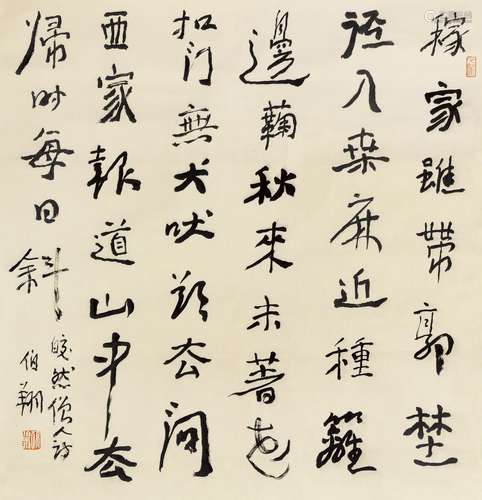 移家雖帶郭埜
徑入桑麻近種籬
邊鞠秋來未著花
扣門無犬吠欲去問
西家報道山中去
歸时每日斜
皎然僧人诗
伯翔